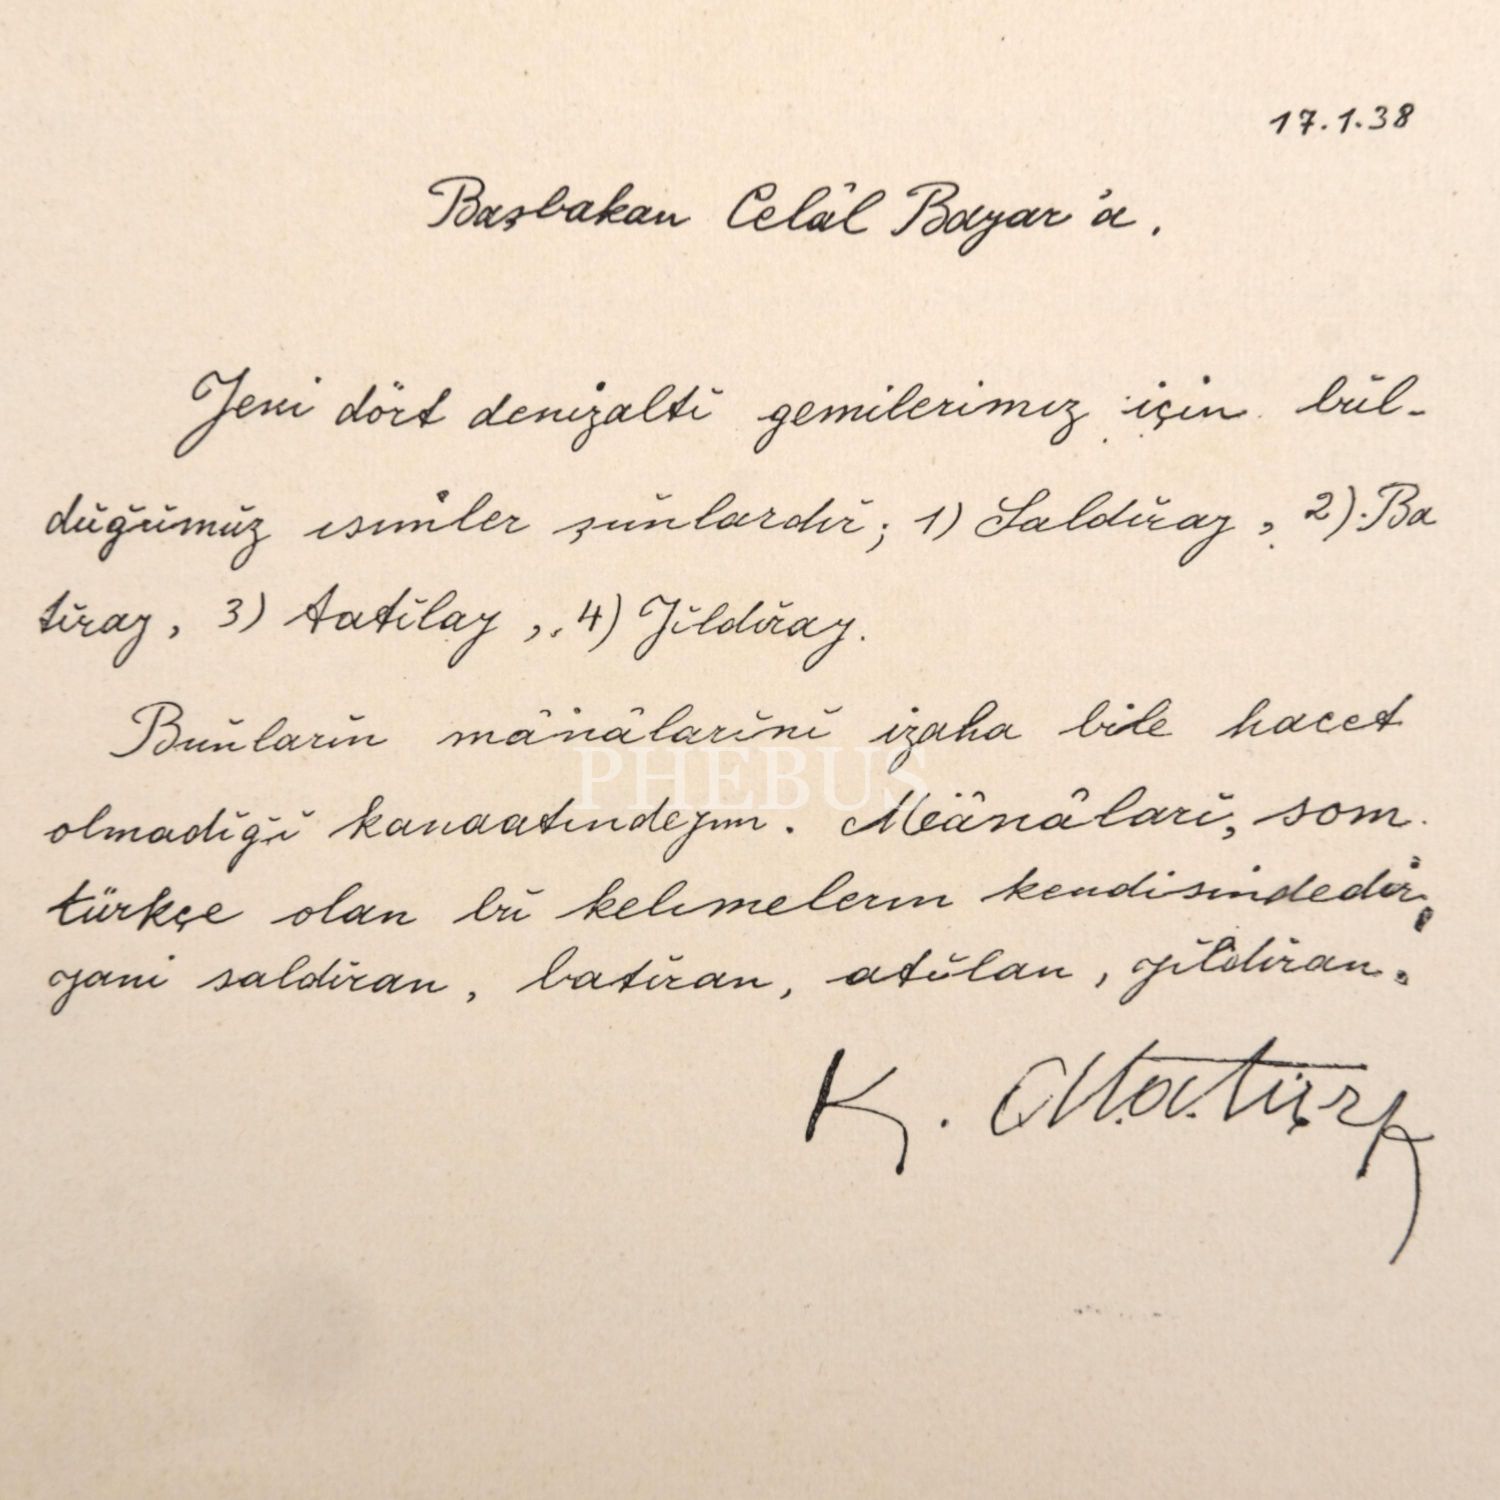 17.1.38
Başbakan Celâl Bayar'a.
Yeni dört denizaltı gemilerimiz için bul-
duğumuz isimler şunlardır; 1) Saldıray, 2) Ba
tıray, 3) Atatılay, 4) Yıldıray.
Bunların mânâlarını izaha bile hacet
olmadığı kanaatındeyim. Mânâları, som
türkçe olan bu kelimelerin kendisindedir,
yani saldıran, batıran, atılan, yıldıran.
K. Atatürk
PHEBUS